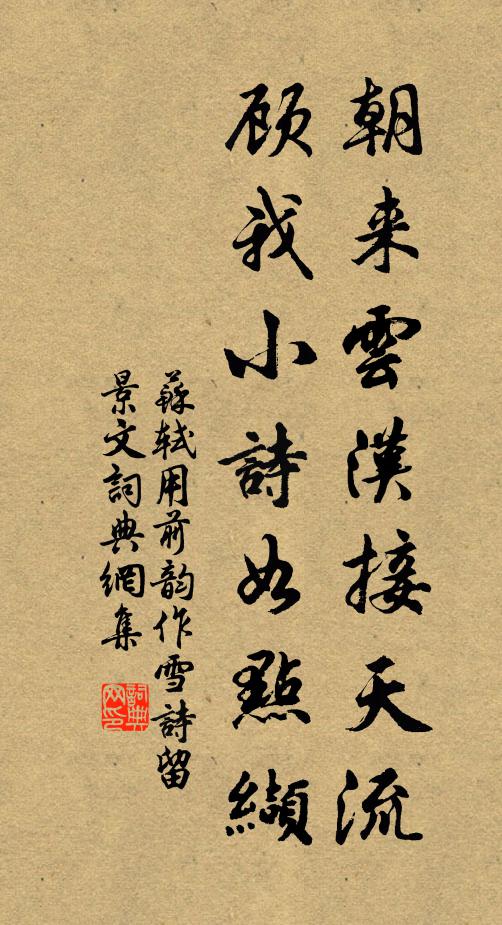 朝来雲漢接天流
顾我小詩如點纈
蘇軾用前韵作雪詩留
景文詞典網集
詞典
网印